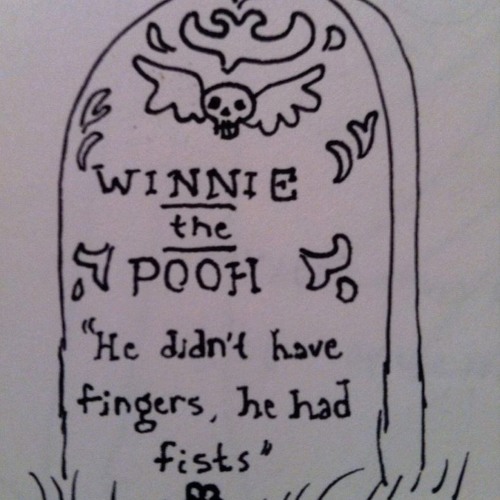 WINNIE
the
POOH
"He didn't have
fingers, he had
fists"